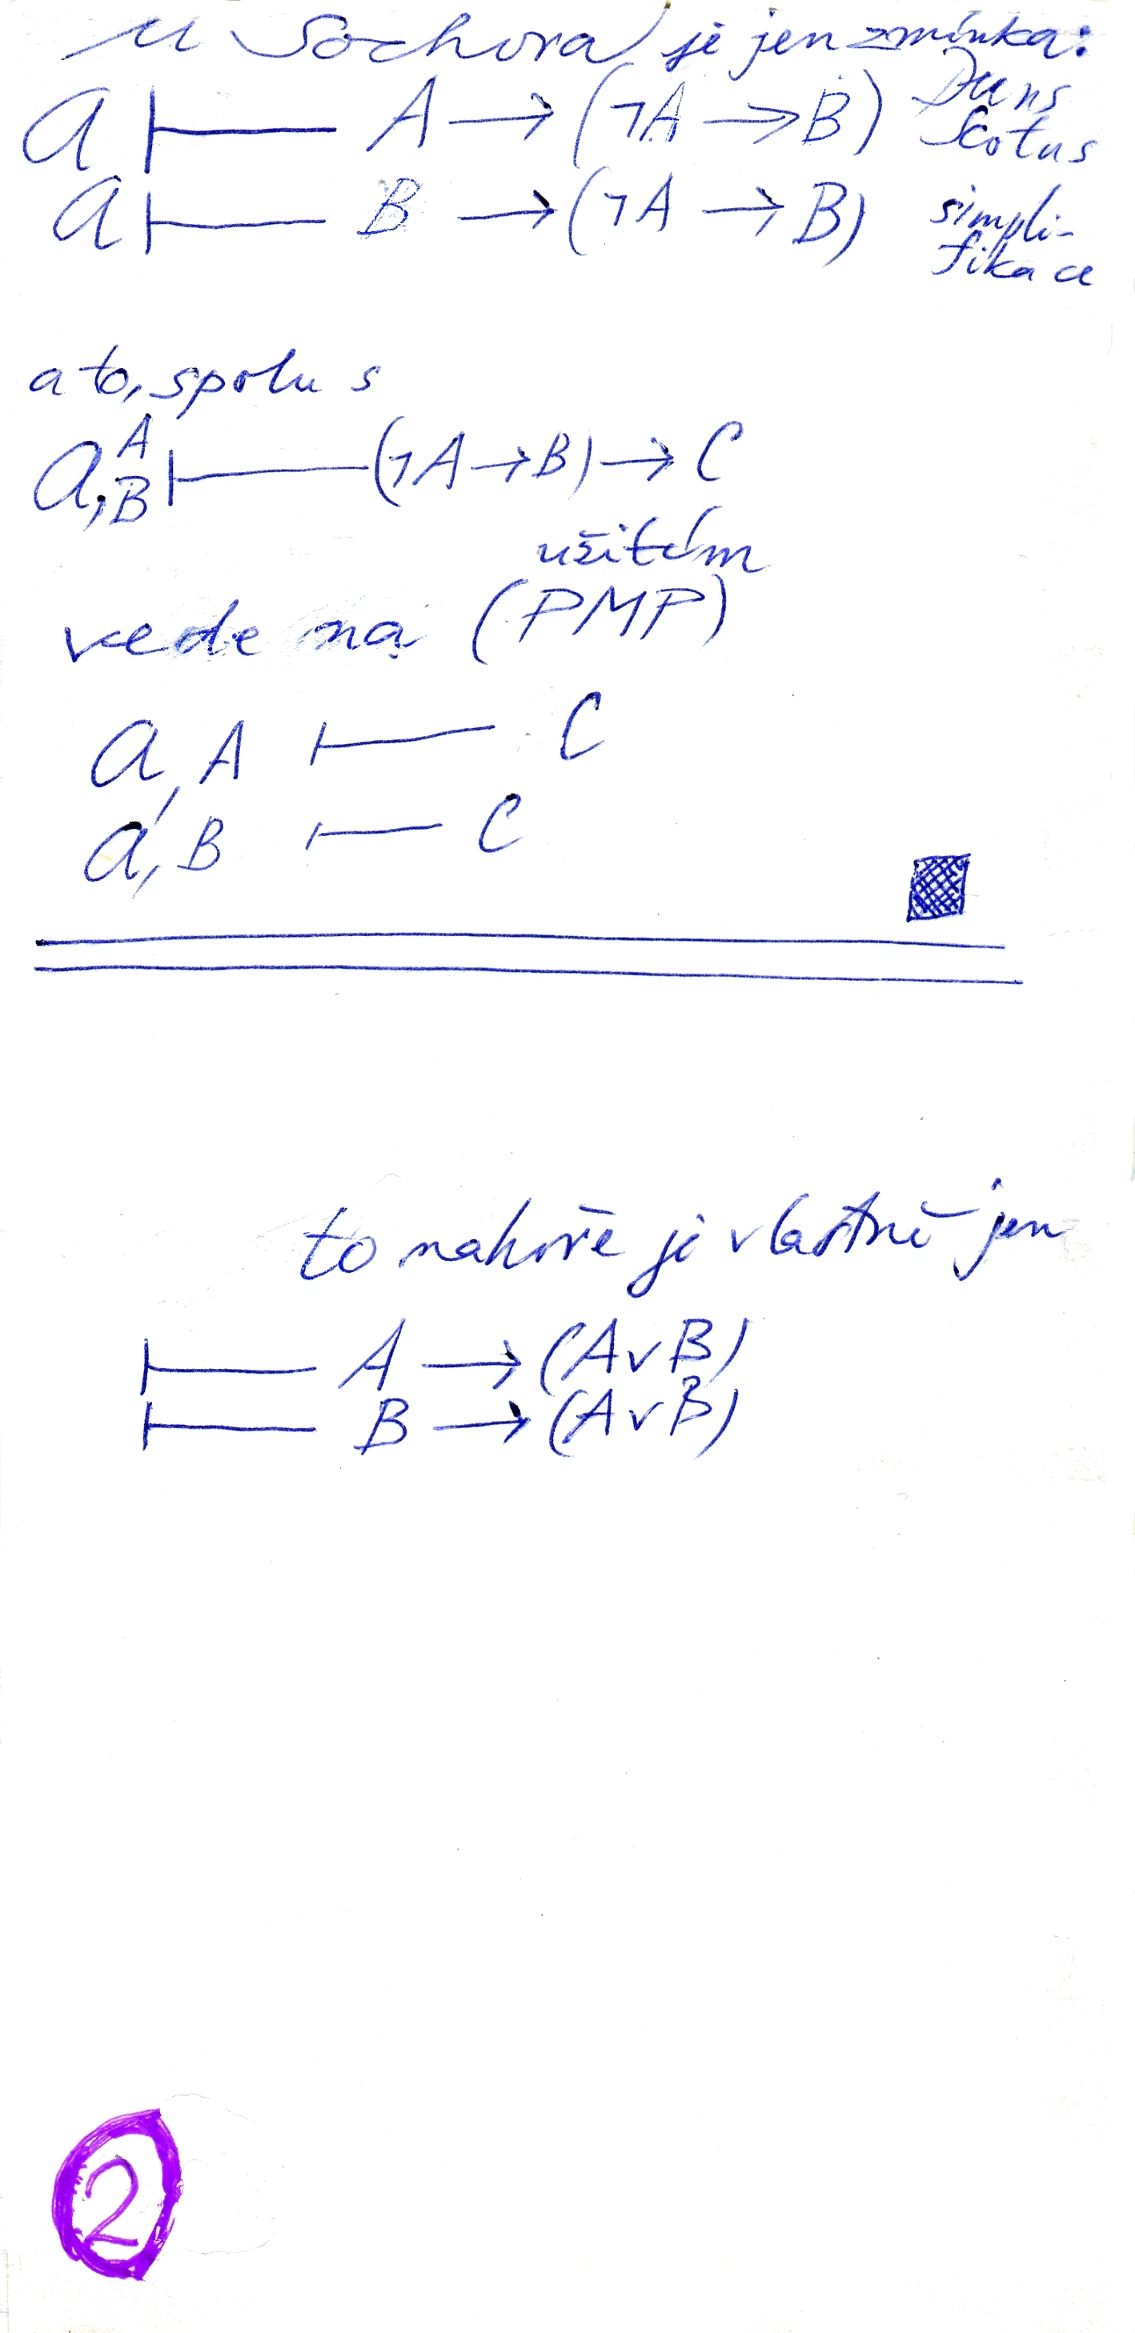 u Sochora je jen zmínka:
a ⊢ A → (¬A → B) Duns Scotus
a ⊢ B → (¬A → B) simplifikace
a to, spolu s
a, A B ⊢ (¬A → B) → C
užitím
vede na (PMP)
a, A ⊢ C
a, B ⊢ C
to nahoře je vlastně jen
⊢ A → (A ∨ B)
⊢ B → (A ∨ B)
2